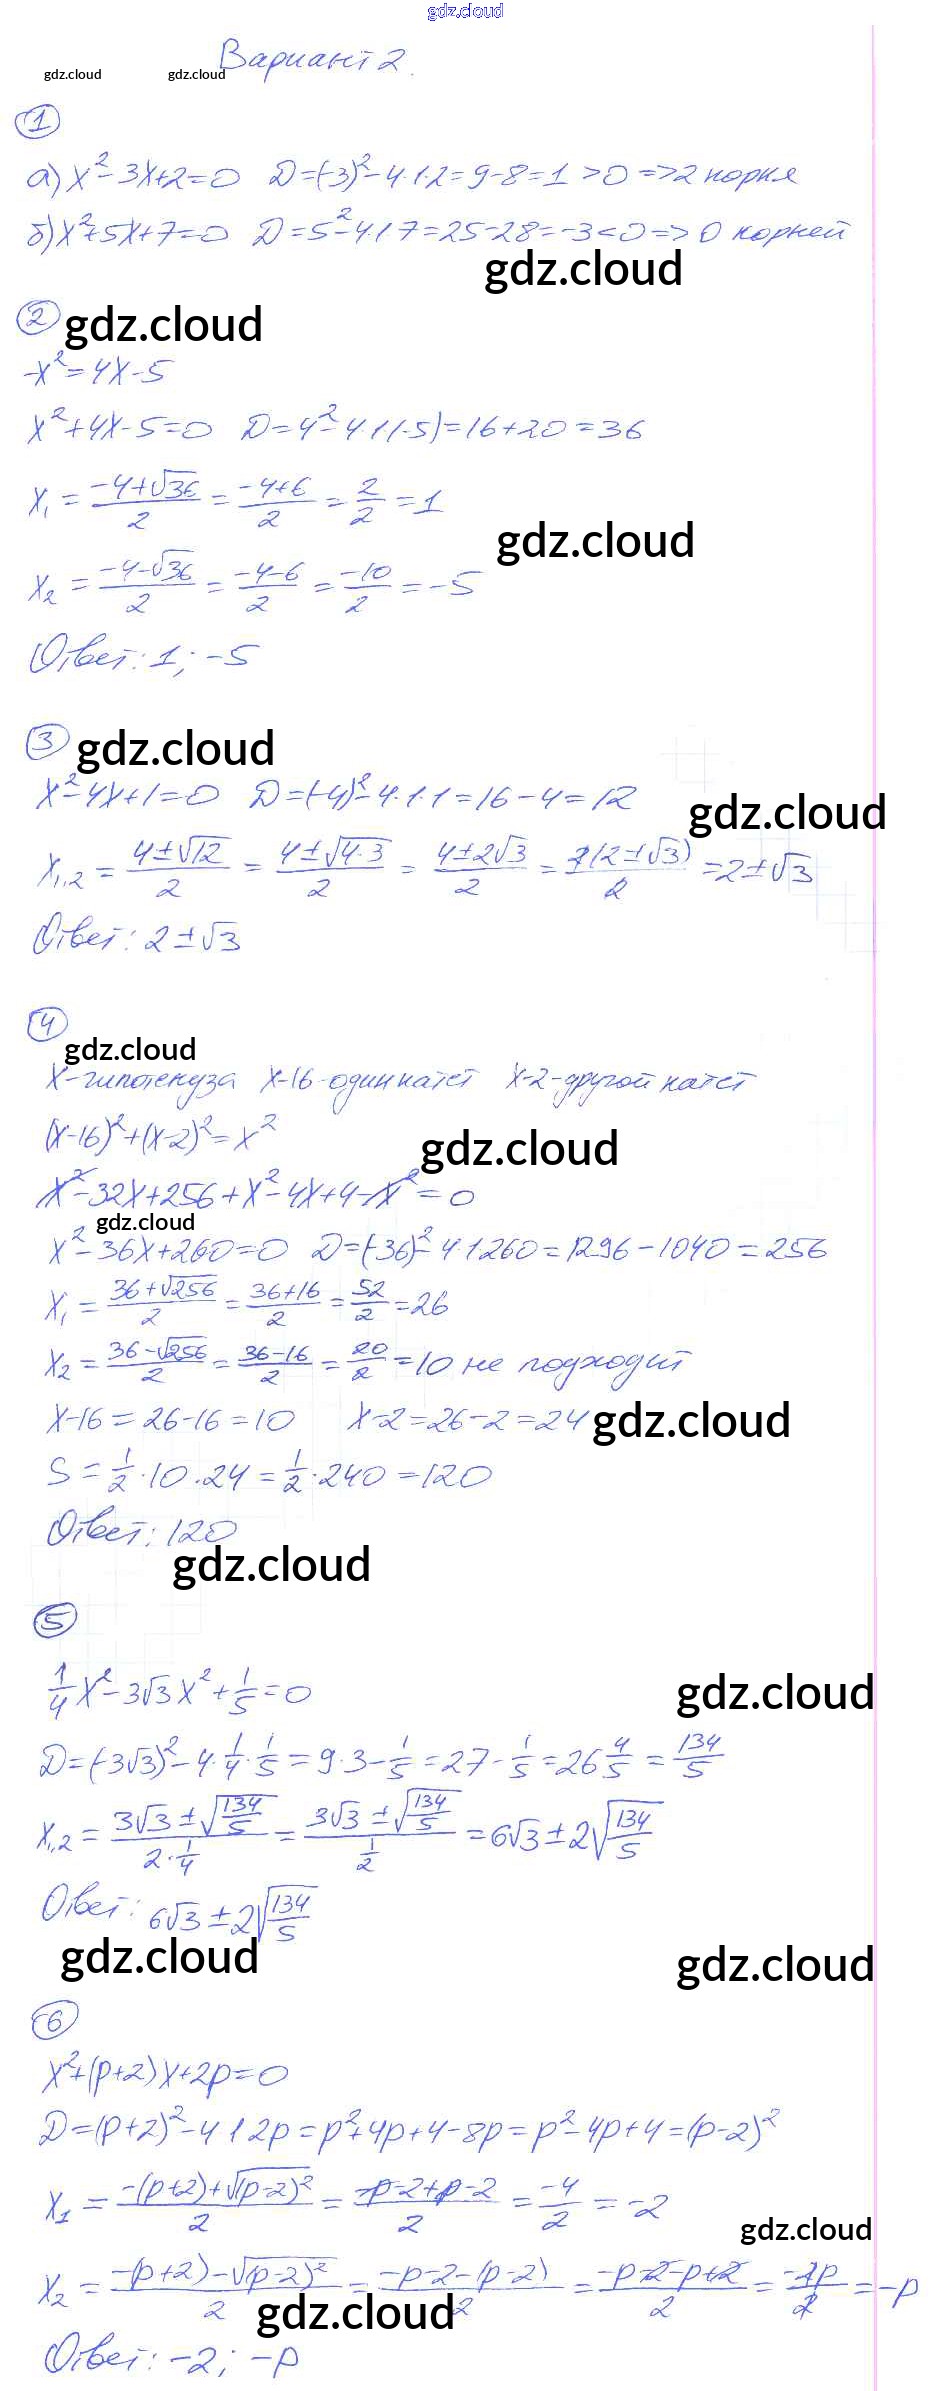 gdz.cloud
Вариант 2.
gdz.cloud gdz.cloud
1
а) x² - 3x + 2 = 0 D = (-3)² - 4·1·2 = 9 - 8 = 1 > 0 => 2 корня
б) x² + 5x + 7 = 0 D = 5² - 4·1·7 = 25 - 28 = -3 < 0 => 0 корней
gdz.cloud
2 gdz.cloud
-x² = 4x - 5
x² + 4x - 5 = 0 D = 4² - 4·1·(-5) = 16 + 20 = 36
x₁ = (-4+√36)/2 = (-4+6)/2 = 2/2 = 1
gdz.cloud
x₂ = (-4-√36)/2 = (-4-6)/2 = -10/2 = -5
Ответ: 1; -5
3 gdz.cloud
x² - 4x + 1 = 0 D = (-4)² - 4·1·1 = 16 - 4 = 12
gdz.cloud
x₁,₂ = (4±√12)/2 = (4±√4·3)/2 = (4±2√3)/2 = 2(2±√3)/2 = 2±√3
Ответ: 2±√3
4
gdz.cloud
x - гипотенуза x-16 - один катет x-2 - другой катет
(x-16)² + (x-2)² = x²
gdz.cloud
x² - 32x + 256 + x² - 4x + 4 - x² = 0
gdz.cloud
x² - 36x + 260 = 0 D = (-36)² - 4·1·260 = 1296 - 1040 = 256
x₁ = (36+√256)/2 = (36+16)/2 = 52/2 = 26
x₂ = (36-√256)/2 = (36-16)/2 = 20/2 = 10 не подходит
x-16 = 26-16 = 10 x-2 = 26-2 = 24
gdz.cloud
S = 1/2 · 10 · 24 = 1/2 · 240 = 120
Ответ: 120
gdz.cloud
5
1/4 x² - 3√3 x² + 1/5 = 0
gdz.cloud
D = (-3√3)² - 4 · 1/4 · 1/5 = 9·3 - 1/5 = 27 - 1/5 = 26 4/5 = 134/5
x₁,₂ = (3√3 ± √(134/5))/(2·1/4) = (3√3 ± √(134/5))/(1/2) = 6√3 ± 2√(134/5)
Ответ: 6√3 ± 2√(134/5)
gdz.cloud gdz.cloud
6
x² + (p+2)x + 2p = 0
D = (p+2)² - 4·1·2p = p² + 4p + 4 - 8p = p² - 4p + 4 = (p-2)²
x₁ = (-(p+2)+√(p-2)²)/2 = (-p-2+p-2)/2 = -4/2 = -2
gdz.cloud
x₂ = (-(p+2)-√(p-2)²)/2 = (-p-2-(p-2))/2 = (-p-2-p+2)/2 = -2p/2 = -p
gdz.cloud
Ответ: -2; -p